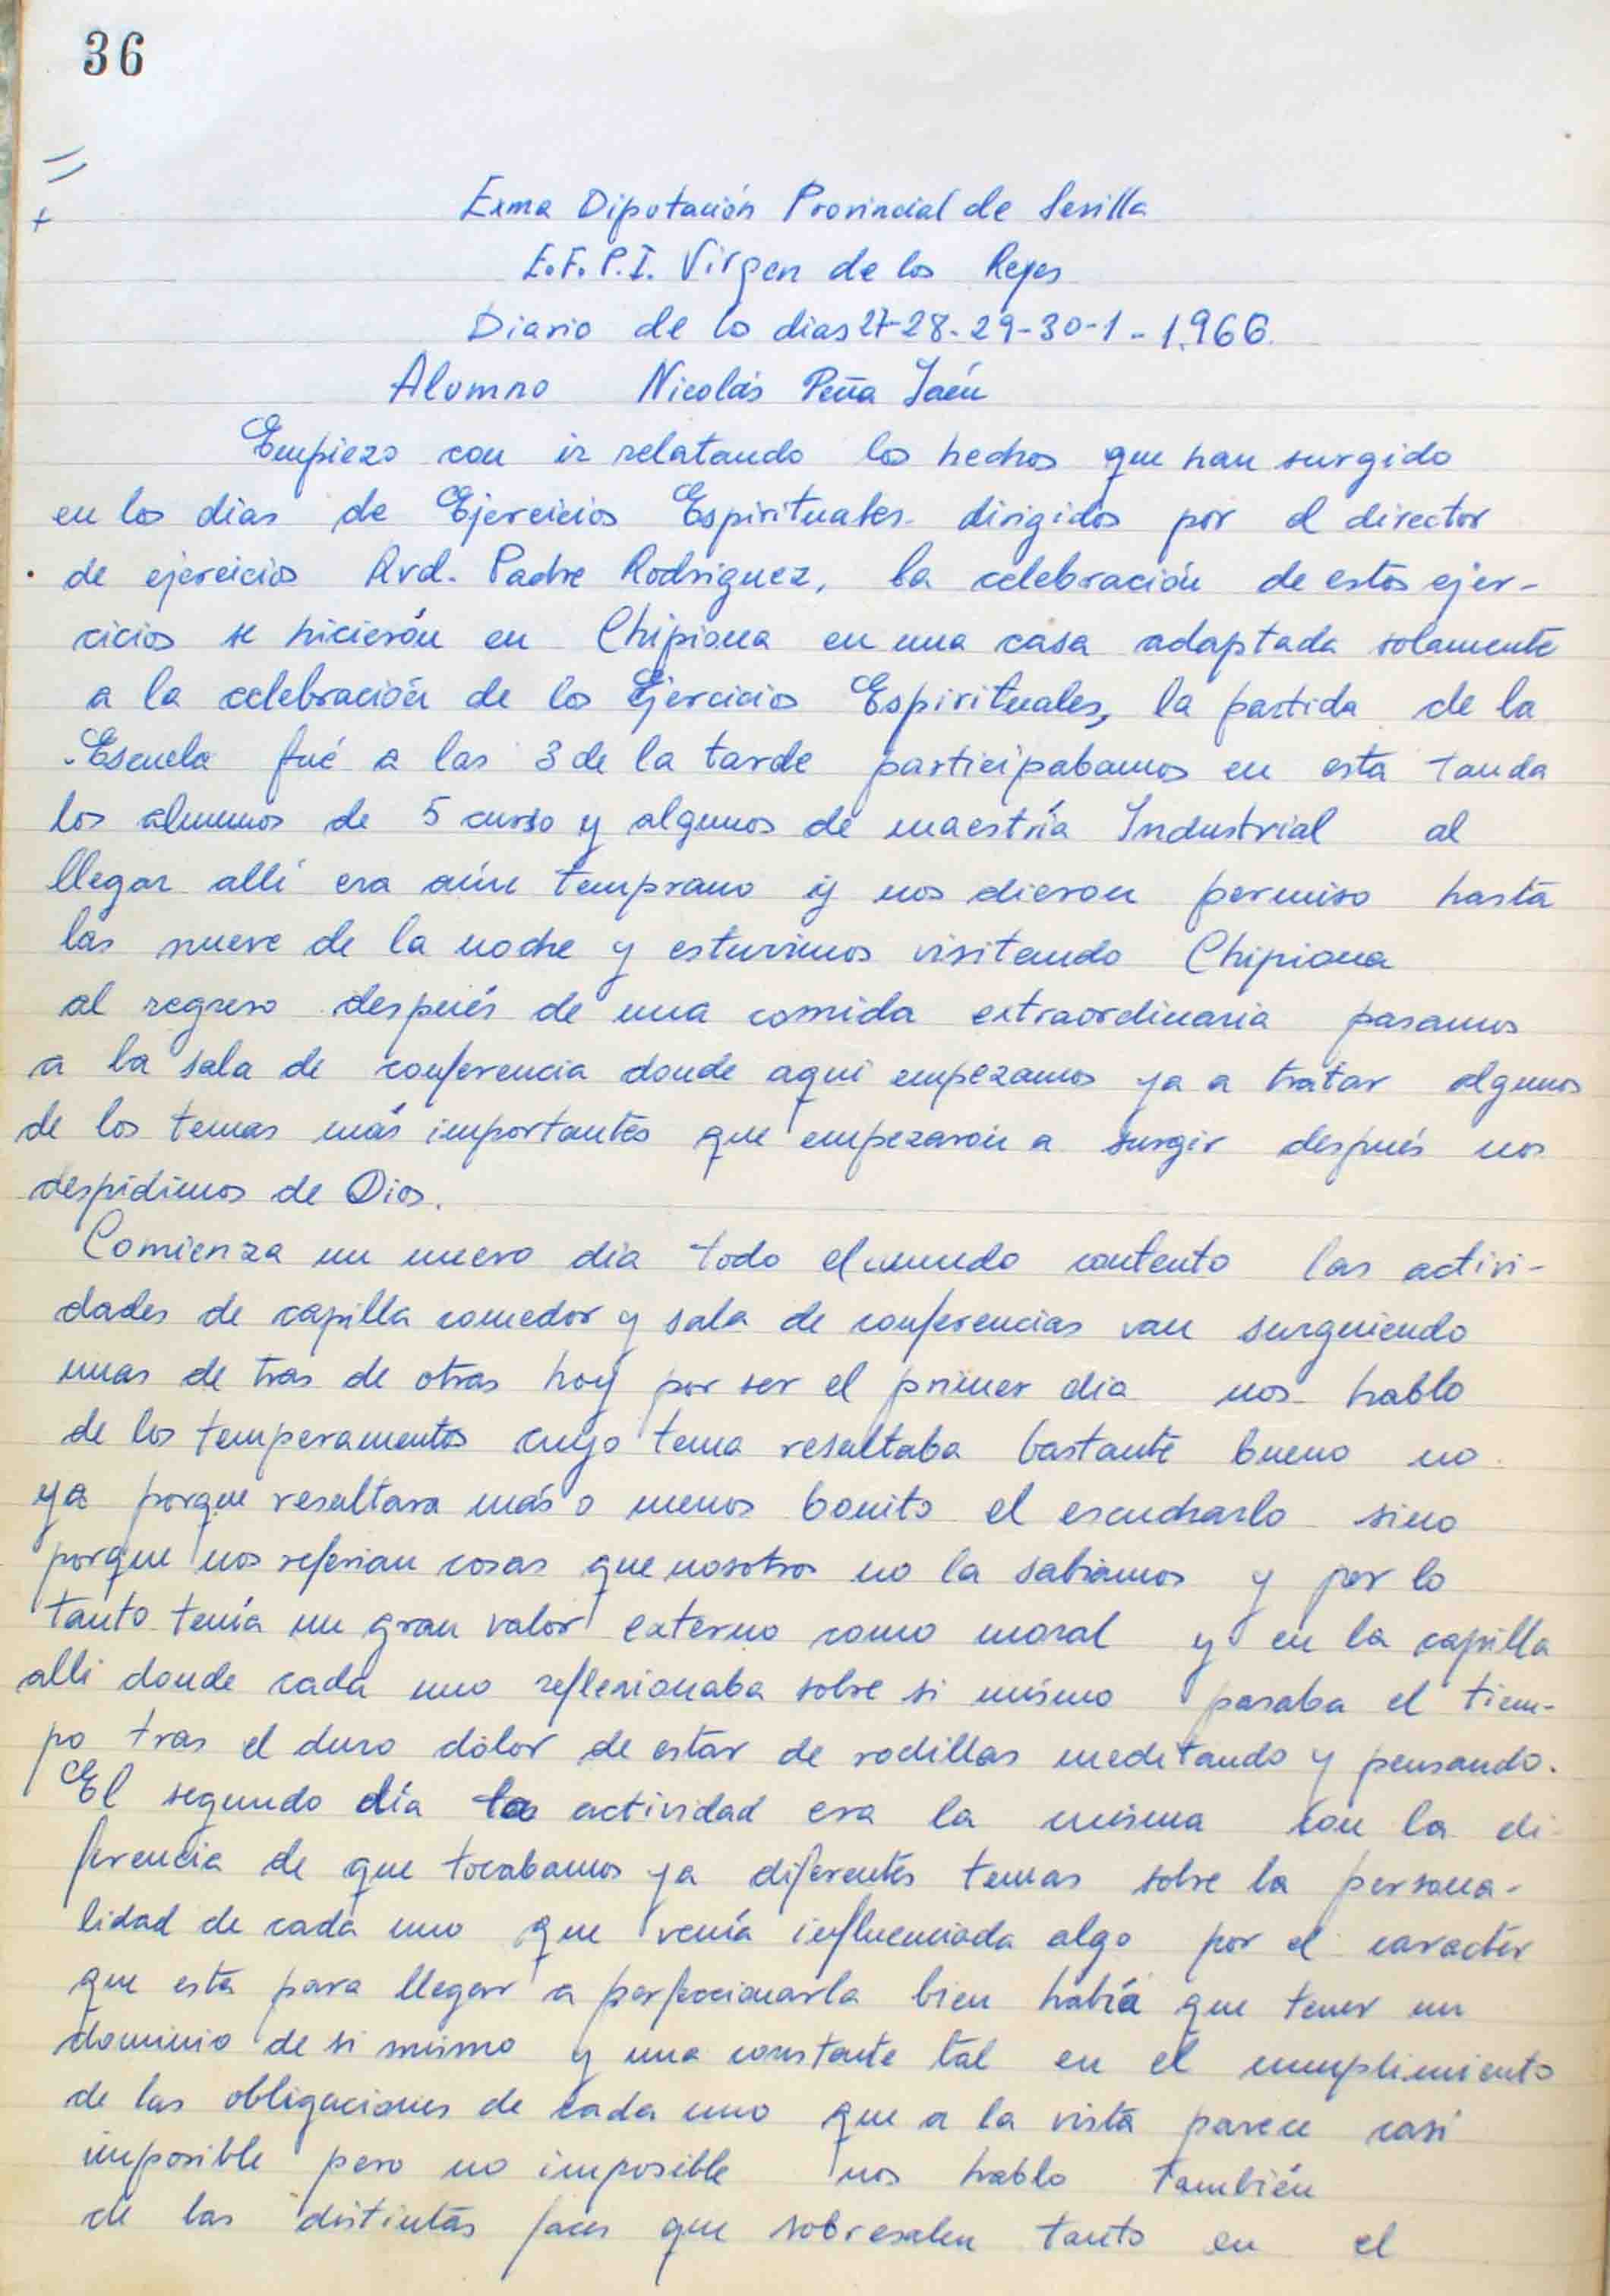 36
Exma Diputación Provincial de Sevilla
E.F.P.I. Virgen de los Reyes
Diario de lo dias 27-28-29-30-1-1.966.
Alumno Nicolás Peña Jaén
Empiezo con ir relatando los hechos que han surgido
en los dias de Ejercicios Espirituales dirigidos por el director
de ejercicios Rvd. Padre Rodriguez, la celebración de estos ejer-
cicios se hicierón en Chipiona en una casa adaptada solamente
a la celebración de los Ejercicios Espirituales, la partida de la
Escuela fué a las 3 de la tarde participabamos en esta tanda
los alumnos de 5 curso y algunos de maestría Industrial al
llegar allí era aún temprano y nos dieron permiso hasta
las nueve de la noche y estuvimos visitando Chipiona
al regreso después de una comida extraordinaria pasamos
a la sala de conferencia donde aqui empezamos ya a tratar algunos
de los temas más importantes que empezarón a surgir después nos
despidimos de Dios.
Comienza un nuevo dia todo el mundo contento las activi-
dades de capilla comedor y sala de conferencias van surguiendo
unas de tras de otras hoy por ser el primer dia nos hablo
de los temperamentos cuyo tema resultaba bastante bueno no
ya porque resultara más o menos bonito el escucharlo sino
porque nos referian cosas que nosotros no la sabiamos y por lo
tanto tenía un gran valor externo como moral y en la capilla
alli donde cada uno reflexionaba sobre si mismo pasaba el tiem-
po tras el duro dolor de estar de rodillas meditando y pensando.
El segundo día la actividad era la misma con la di-
ferencia de que tocabamos ya diferentes temas sobre la persona-
lidad de cada uno que venía influenciada algo por el caracter
que esta para llegar a perfeccionarla bien había que tener un
dominio de si mismo y una constante tal en el cumplimiento
de las obligaciones de cada uno que a la vista parece casi
imposible pero no imposible nos hablo también
de las distintas faces que sobresalen tanto en el